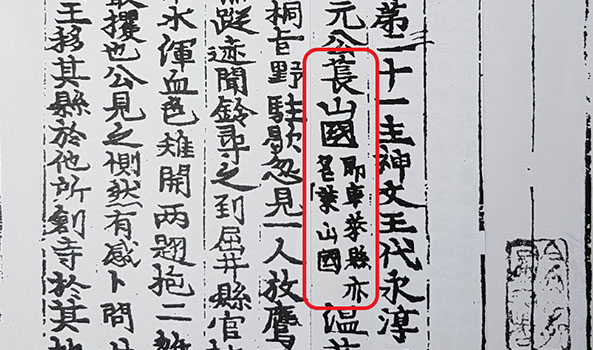 第二十一主神文王代永淳
元公萇山國
即東萊縣亦
名萊山國
溫
桐旨野駐歇忽見一人放鷹
蹤迹聞鈴尋之到屈井縣官
水渾血色雉開两翅抱二
攫也公見之惻然有感卜問
王移其縣於他所創寺於其